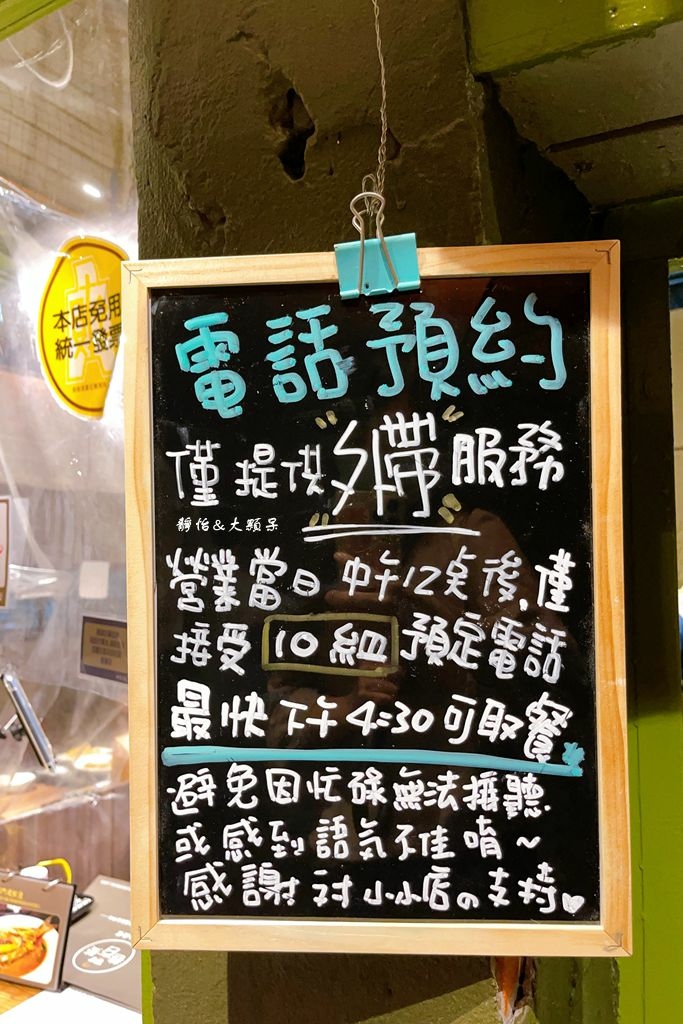 本店免用
統一發票
電話預約
僅提供"外帶"服務
靜怡&大顆呆
營業當日中午12點後,僅
接受10組預定電話
最快下午4:30可取餐
避免因忙碌無法接聽
或感到語氣不佳唷~
感謝対小小店の支持♥